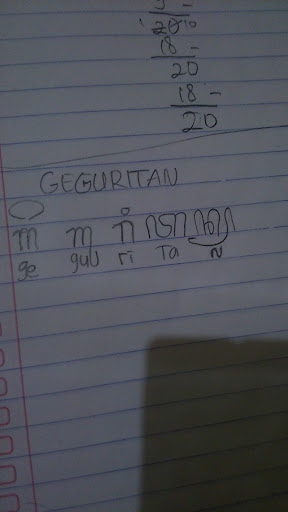 20 10
18 -
20
18 -
20
GEGURITAN
ꦒꦼ ꦒ ꦫꦶ ꦠ ꦤ꧀
ge gu ri Ta N